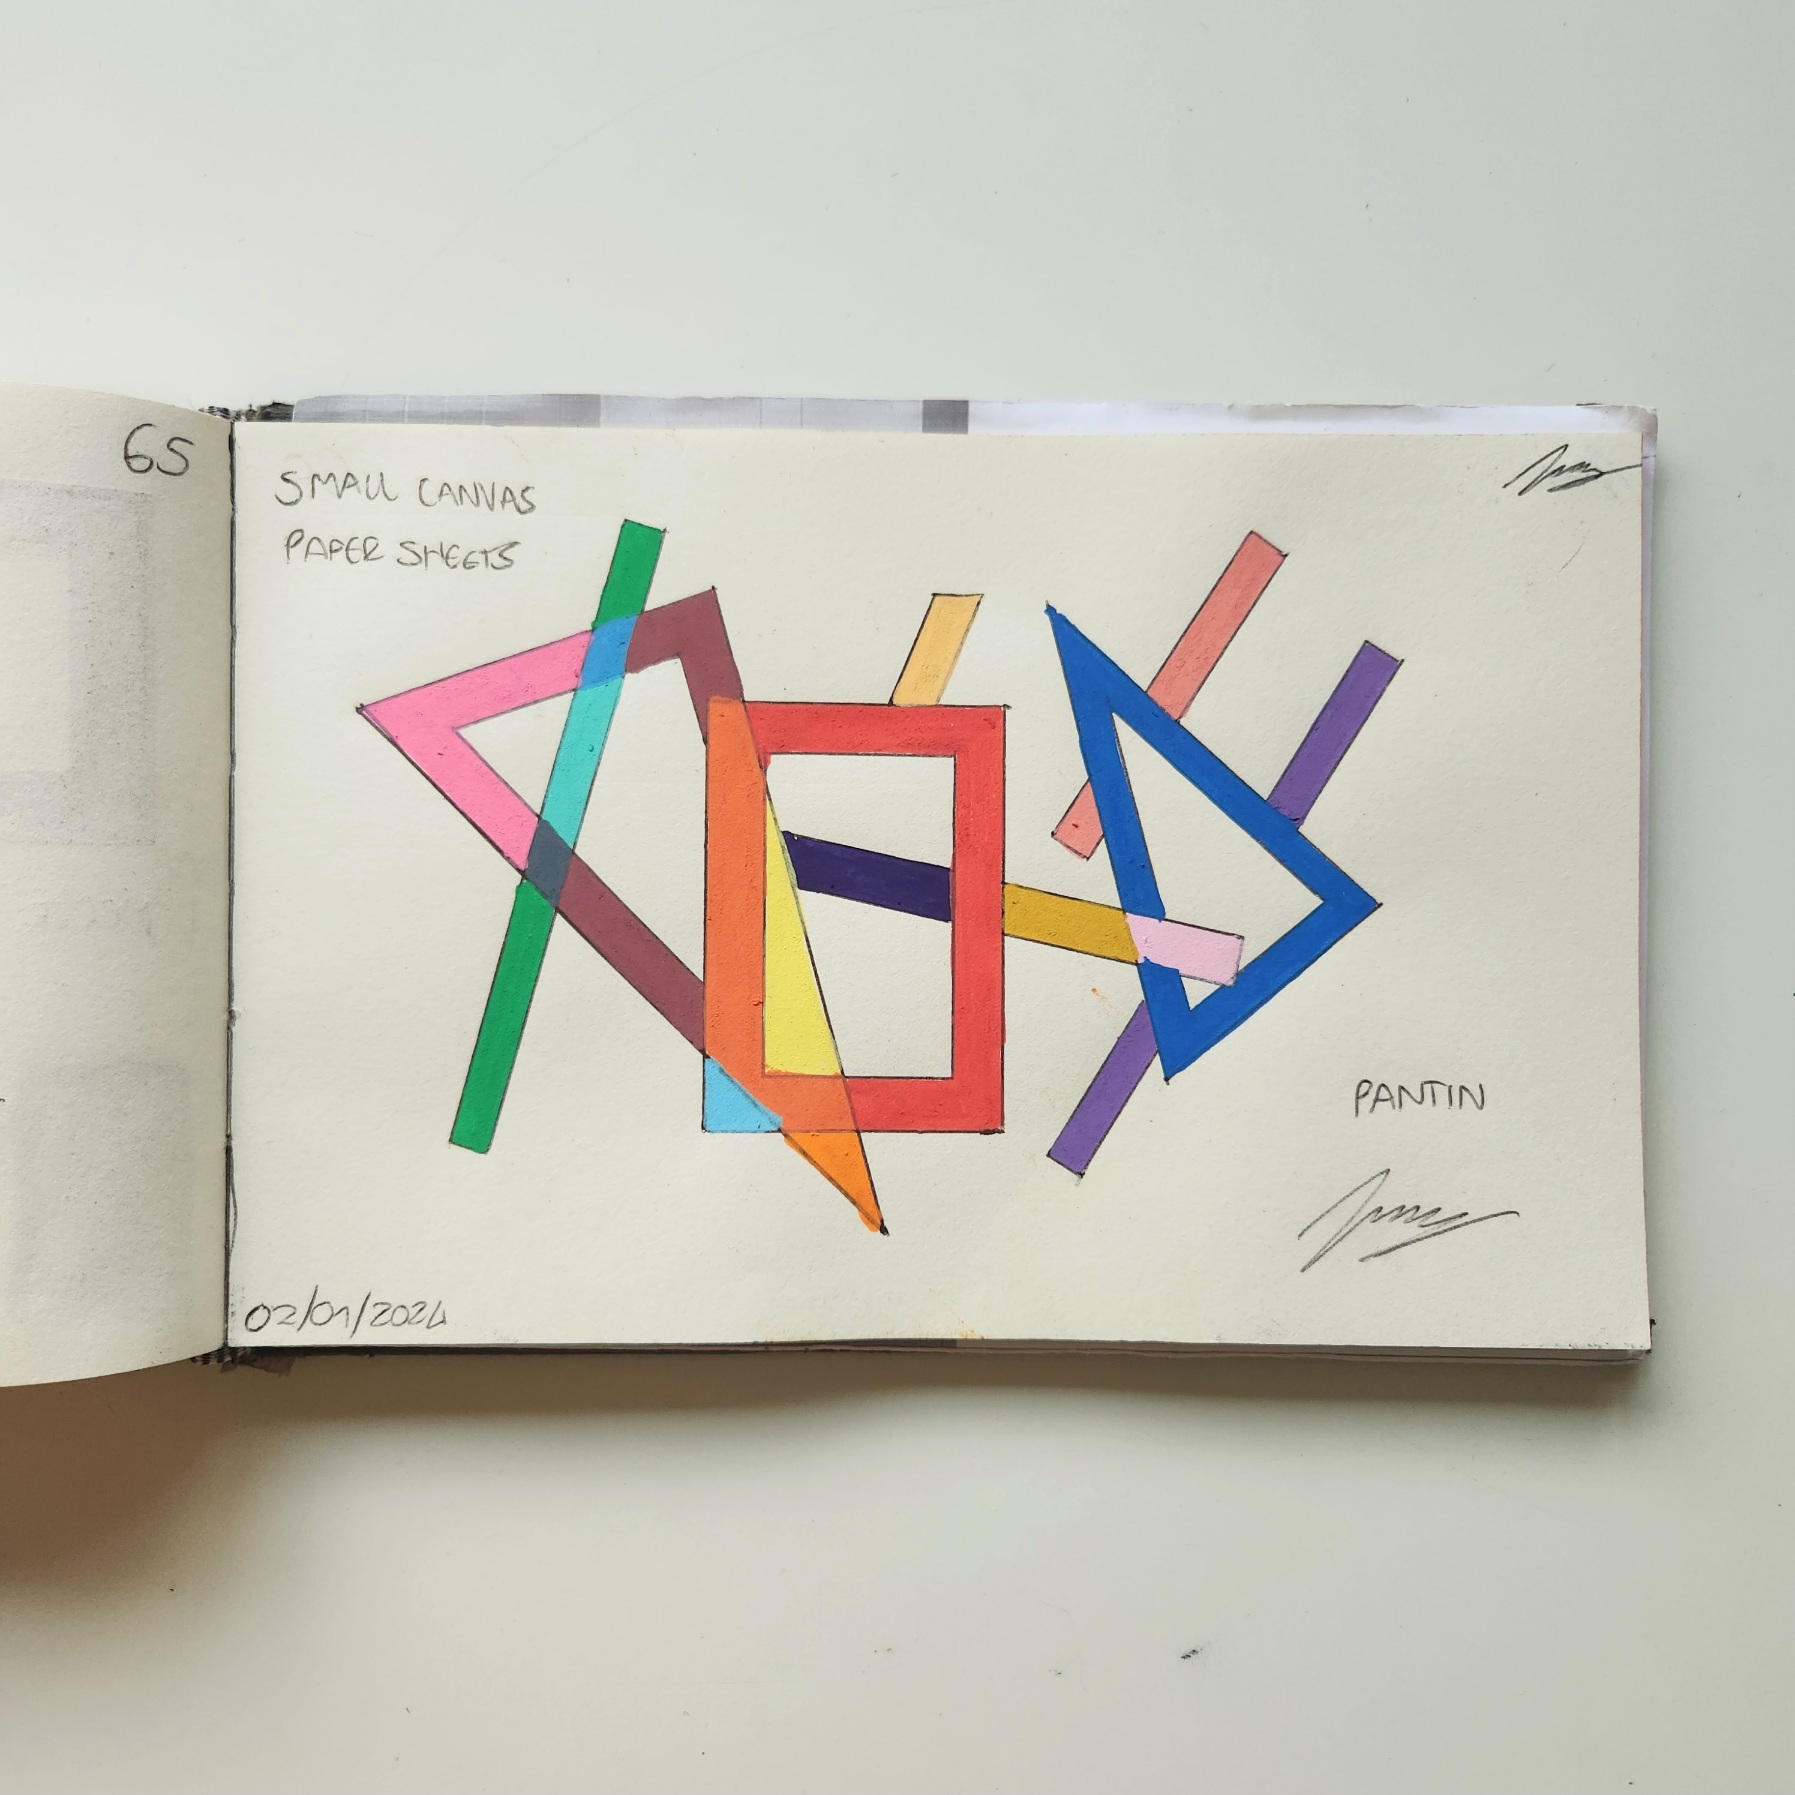 65
SMALL CANVAS
PAPER SHEETS
PANTIN
02/01/2024